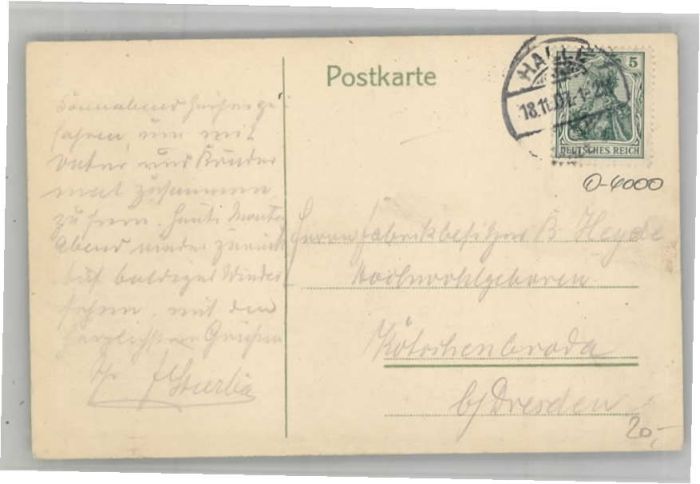 Postkarte
HALLE
18.11.07. 1-2N
5
DEUTSCHES REICH
O-4000
Sonnabend hierher ge
fahren, um mit
Vater und Bruder
mal zusammen
zu sein. Heute
Abend wieder zurück
Auf baldiges Wieder
sehen, mit den
herzlichsten Grüßen
Herrn Fabrikbesitzer B. Heyde
Hochwohlgeboren
Kötschenbroda
b/Dresden
20,-